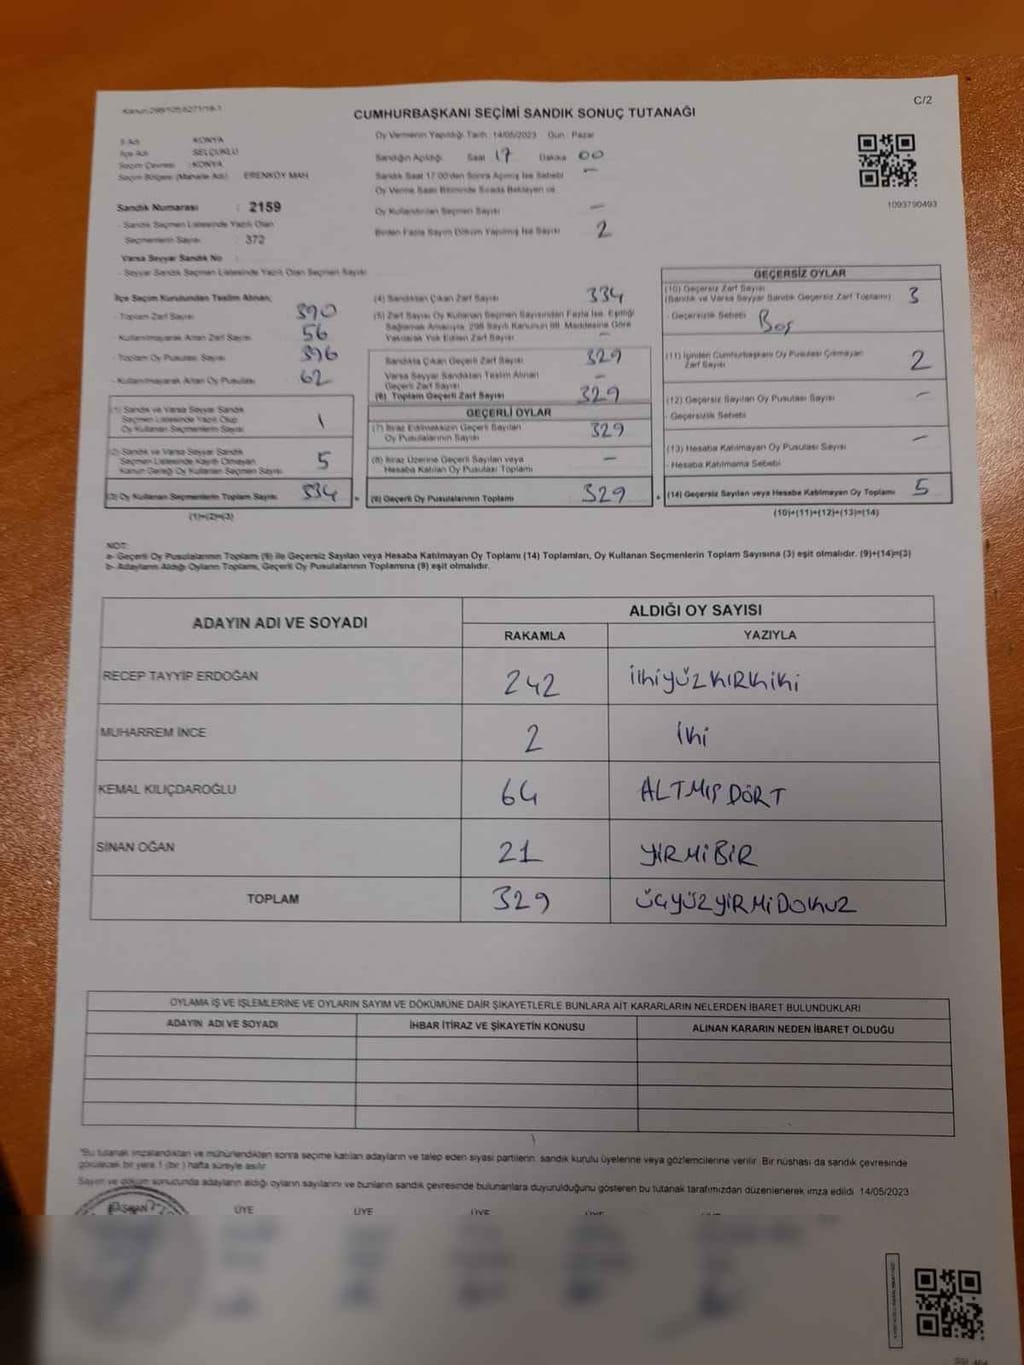 C/2
CUMHURBAŞKANI SEÇİMİ SANDIK SONUÇ TUTANAĞI
İl Adı : KONYA
İlçe Adı : SELÇUKLU
Seçim Çevresi : KONYA
Seçim Bölgesi (Mahalle Adı) : ERENKÖY MAH
Sandık Numarası : 2159
- Sandık Seçmen Listesinde Yazılı Olan
Seçmenlerin Sayısı : 372
Varsa Seyyar Sandık No
- Seyyar Sandık Seçmen Listesinde Yazılı Olan Seçmen Sayısı
Oy Vermenin Yapıldığı Tarih : 14/05/2023 Gün : Pazar
Sandığın Açıldığı Saat 17 Dakika 00
Sandık Saat 17.00'den Sonra Açılmış İse Sebebi —
Oy Verme Saati Bitiminde Sırada Bekleyen ve
Oy Kullandırılan Seçmen Sayısı —
Birden Fazla Sayım Döküm Yapılmış İse Sayısı 2
1093790493
İlçe Seçim Kurulundan Teslim Alınan;
- Toplam Zarf Sayısı 390
- Kullanılmayarak Artan Zarf Sayısı 56
- Toplam Oy Pusulası Sayısı 396
- Kullanılmayarak Artan Oy Pusulası 62
(1) Sandık ve Varsa Seyyar Sandık
Seçmen Listesinde Yazılı Olup
Oy Kullanan Seçmenlerin Sayısı 1
(2) Sandık ve Varsa Seyyar Sandık
Seçmen Listesinde Kayıtlı Olmayan
Kanun Gereği Oy Kullanan Seçmen Sayısı 5
(3) Oy Kullanan Seçmenlerin Toplam Sayısı 334
(1)+(2)=(3)
(4) Sandıktan Çıkan Zarf Sayısı 334
(5) Zarf Sayısı Oy Kullanan Seçmen Sayısından Fazla İse, Eşitliği
Sağlamak Amacıyla, 298 Sayılı Kanunun 98. Maddesine Göre
Yakılarak Yok Edilen Zarf Sayısı —
Sandıkta Çıkan Geçerli Zarf Sayısı 329
Varsa Seyyar Sandıktan Teslim Alınan
Geçerli Zarf Sayısı —
(6) Toplam Geçerli Zarf Sayısı 329
GEÇERLİ OYLAR
(7) İtiraz Edilmeksizin Geçerli Sayılan
Oy Pusulalarının Sayısı 329
(8) İtiraz Üzerine Geçerli Sayılan veya
Hesaba Katılan Oy Pusulası Toplamı —
= (9) Geçerli Oy Pusulalarının Toplamı 329
GEÇERSİZ OYLAR
(10) Geçersiz Zarf Sayısı
(Sandık ve Varsa Seyyar Sandık Geçersiz Zarf Toplamı) 3
- Geçersizlik Sebebi Boş
(11) İçinden Cumhurbaşkanı Oy Pusulası Çıkmayan
Zarf Sayısı 2
(12) Geçersiz Sayılan Oy Pusulası Sayısı —
- Geçersizlik Sebebi
(13) Hesaba Katılmayan Oy Pusulası Sayısı —
- Hesaba Katılmama Sebebi
+ (14) Geçersiz Sayılan veya Hesaba Katılmayan Oy Toplamı 5
(10)+(11)+(12)+(13)=(14)
NOT:
a- Geçerli Oy Pusulalarının Toplamı (9) ile Geçersiz Sayılan veya Hesaba Katılmayan Oy Toplamı (14) Toplamları, Oy Kullanan Seçmenlerin Toplam Sayısına (3) eşit olmalıdır. (9)+(14)=(3)
b- Adayların Aldığı Oyların Toplamı, Geçerli Oy Pusulalarının Toplamına (9) eşit olmalıdır.
ADAYIN ADI VE SOYADI ALDIĞI OY SAYISI
RAKAMLA YAZIYLA
RECEP TAYYİP ERDOĞAN 242 ikiyüzkırkiki
MUHARREM İNCE 2 iki
KEMAL KILIÇDAROĞLU 64 ALTMIŞDÖRT
SİNAN OĞAN 21 YİRMİBİR
TOPLAM 329 ÜÇYÜZYİRMİDOKUZ
OYLAMA İŞ VE İŞLEMLERİNE VE OYLARIN SAYIM VE DÖKÜMÜNE DAİR ŞİKAYETLERLE BUNLARA AİT KARARLARIN NELERDEN İBARET BULUNDUKLARI
ADAYIN ADI VE SOYADI İHBAR İTİRAZ VE ŞİKAYETİN KONUSU ALINAN KARARIN NEDEN İBARET OLDUĞU
"Bu tutanak imzalandıktan ve mühürlendikten sonra seçime katılan adayların ve talep eden siyasi partilerin, sandık kurulu üyelerine veya gözlemcilerine verilir. Bir nüshası da sandık çevresinde
görülecek bir yere 1 (bir) hafta süreyle asılır.
Sayım ve döküm sonucunda adayların aldığı oyların sayılarını ve bunların sandık çevresinde bulunanlara duyurulduğunu gösteren bu tutanak tarafımızdan düzenlenerek imza edildi. 14/05/2023
ÜYE ÜYE ÜYE ÜYE ÜYE